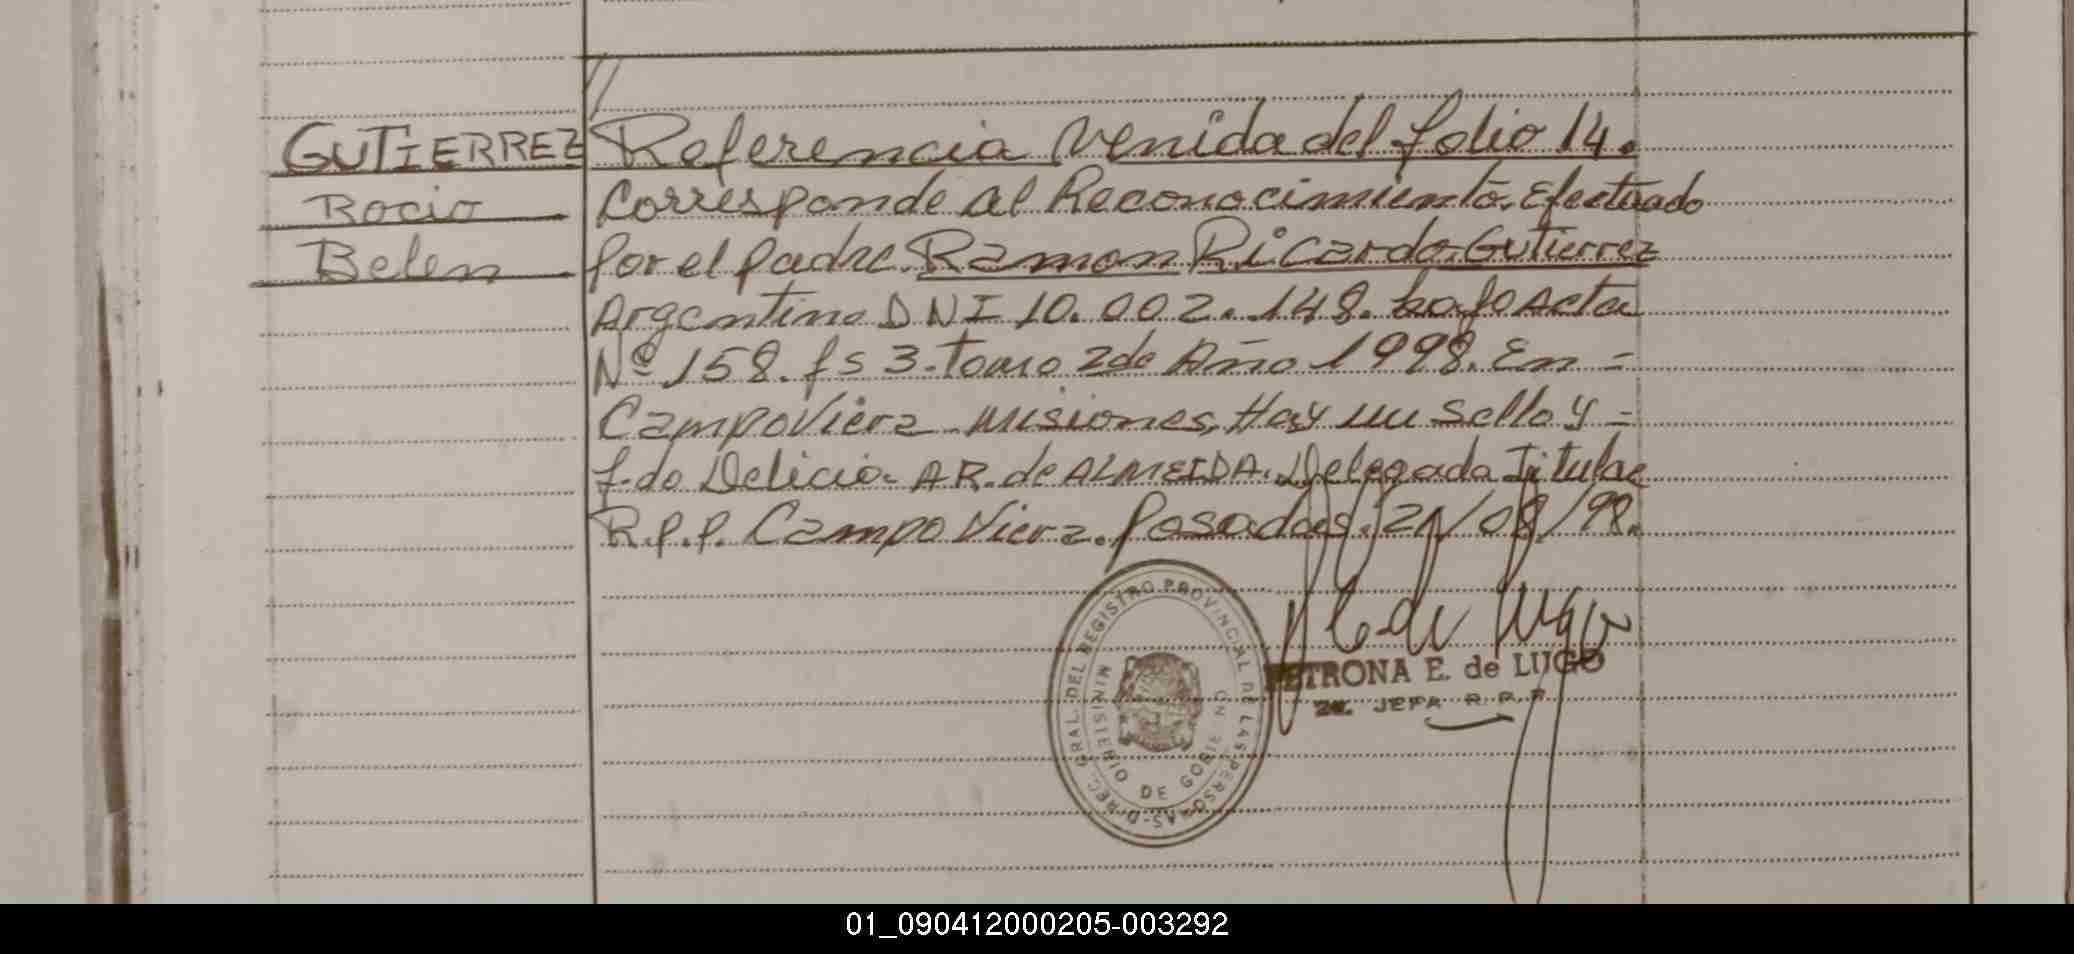 GUTIERREZ
Rocio
Belen
Referencia venida del folio 14.
Corresponde al Reconocimiento. Efectuado
por el padre. Ramon Ricardo Gutierrez
Argentino DNI 10.002.148. bajo Acta
Nº 158. fs 3. tomo 2do Año 1998. En =
Campo Viera Misiones, Hay un sello y =
f.do Delicia AR. de ALMEIDA. Delegada Titular
R.p.p. Campo Viera. Posadas. 21/08/98.
DIREC. GRAL. DEL REGISTRO PROVINCIAL DE LAS PERSONAS
MINISTERIO DE GOBIERNO
PETRONA E. de LUGO
JEFA R.P.P.
01_090412000205-003292